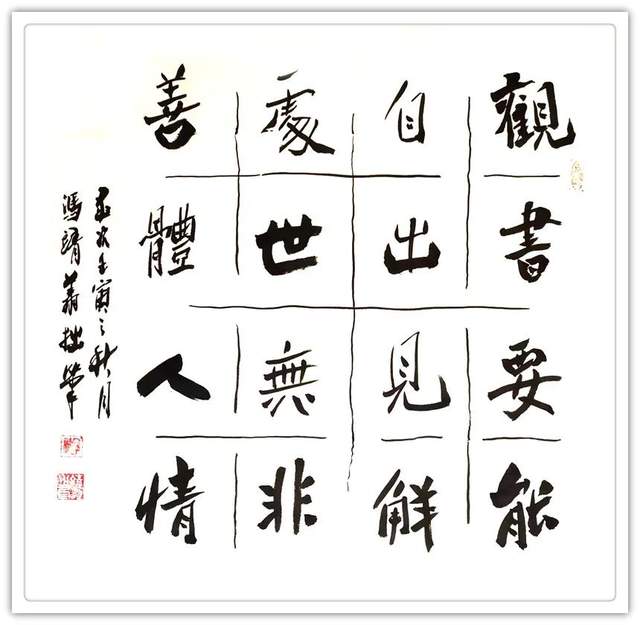 觀書要能
自出見觧
處世無非
善體人情
歲次壬寅之秋月
馮拙筆